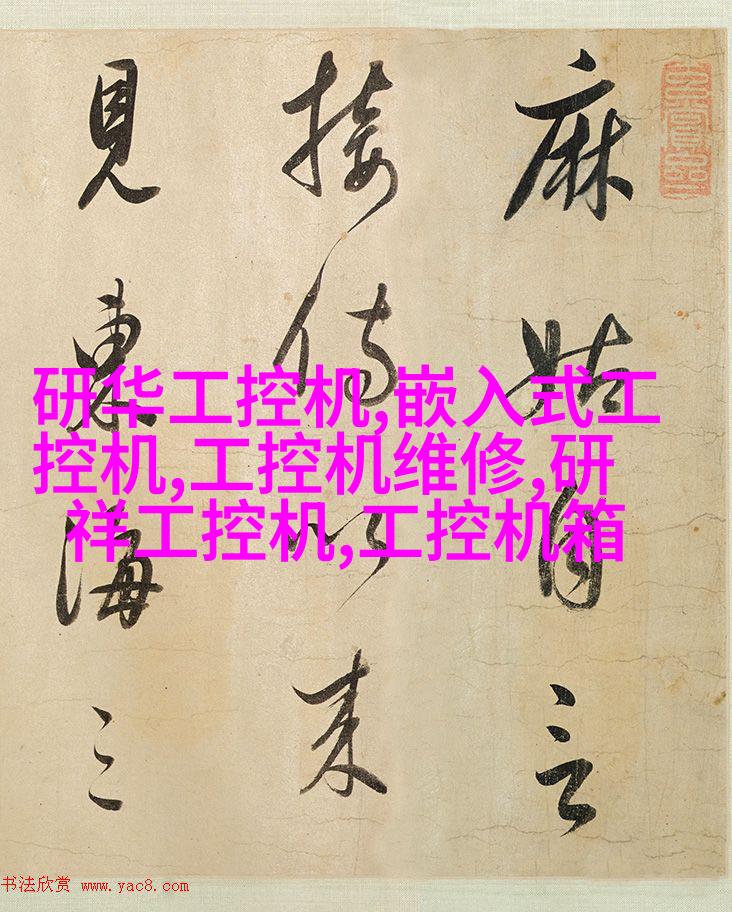 麻姑自言
接侍以来
見東海三
研华工控机,嵌入式工
控机,工控机维修,研
祥工控机,工控机箱
书法欣赏 www.yac8.com